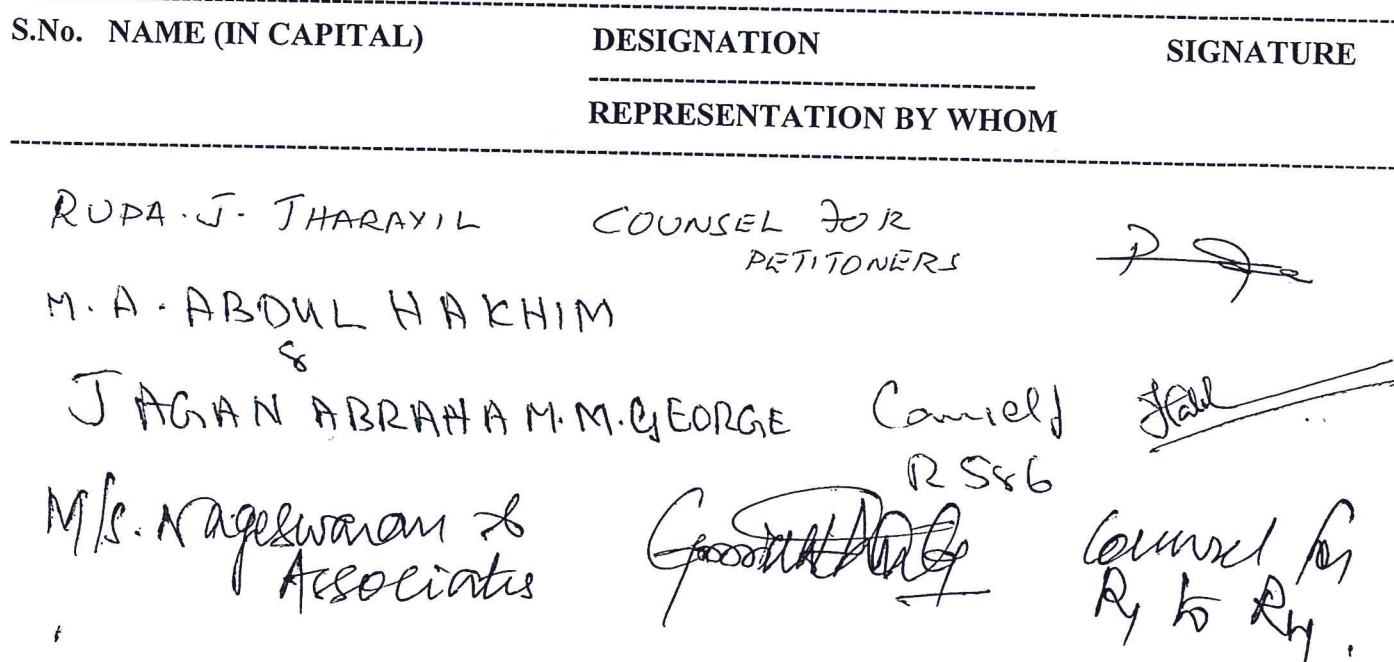 S.No. NAME (IN CAPITAL) DESIGNATION SIGNATURE
REPRESENTATION BY WHOM
RUPA . J . THARAYIL COUNSEL FOR
PETITONERS
M . A . ABDUL HAKHIM
&
JAGAN ABRAHAM . M . GEORGE
R 5&6
M/s. Nageswaran & Counsel for
Associates R1 to R4 .